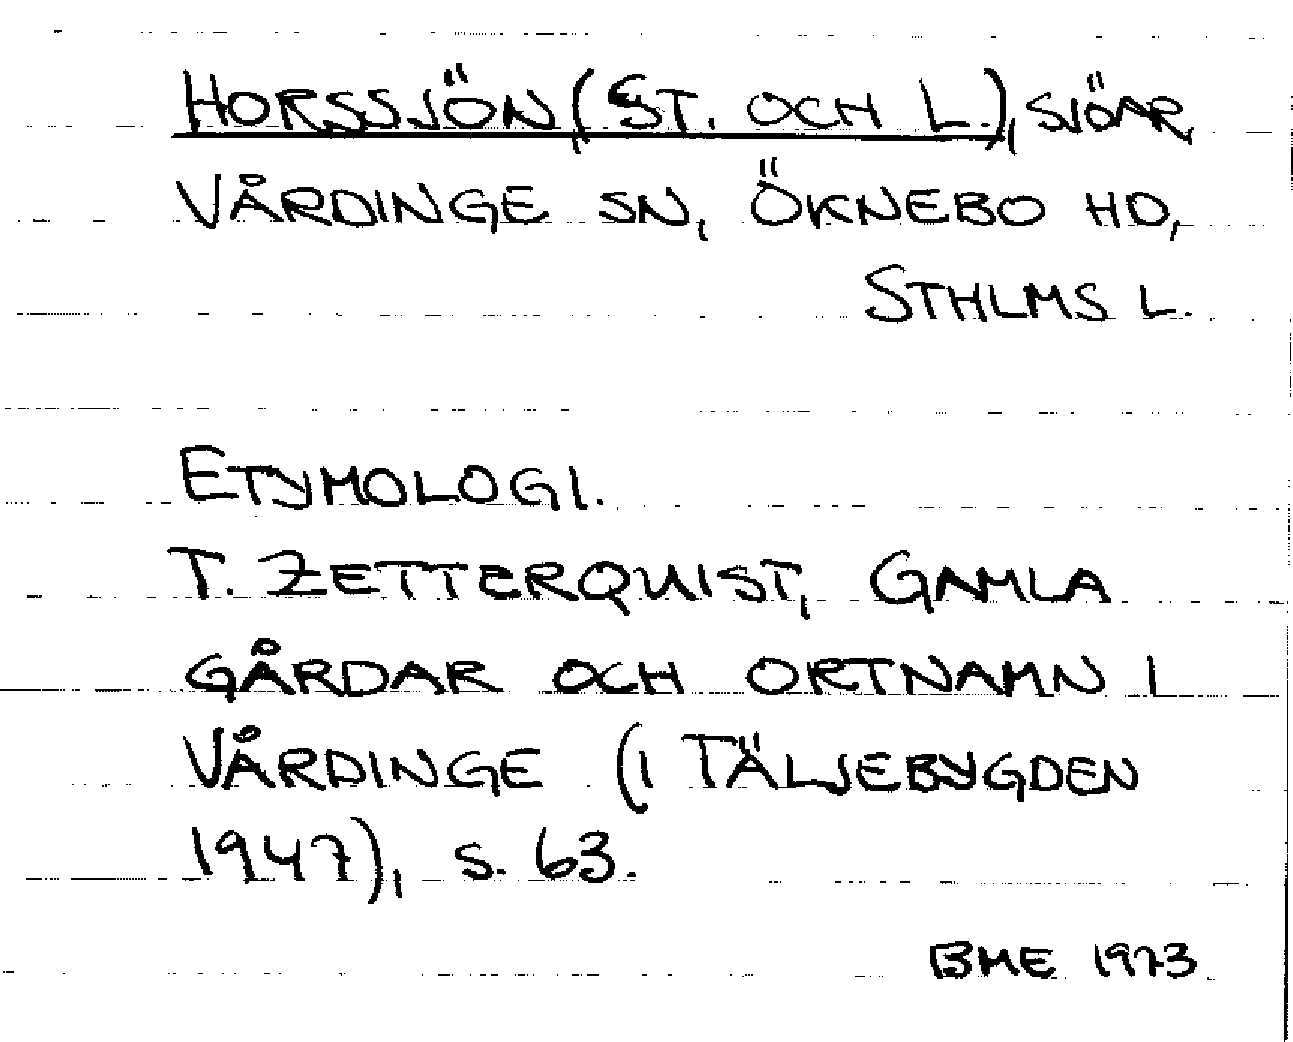 HORSSJÖN (ST. OCH L.), SJÖAR
VÅRDINGE SN, ÖKNEBO HD,
STHLMS L.
ETYMOLOGI.
T. ZETTERQUIST, GAMLA
GÅRDAR OCH ORTNAMN I
VÅRDINGE (I TÄLJEBYGDEN
1947), S. 63.
BME 1973